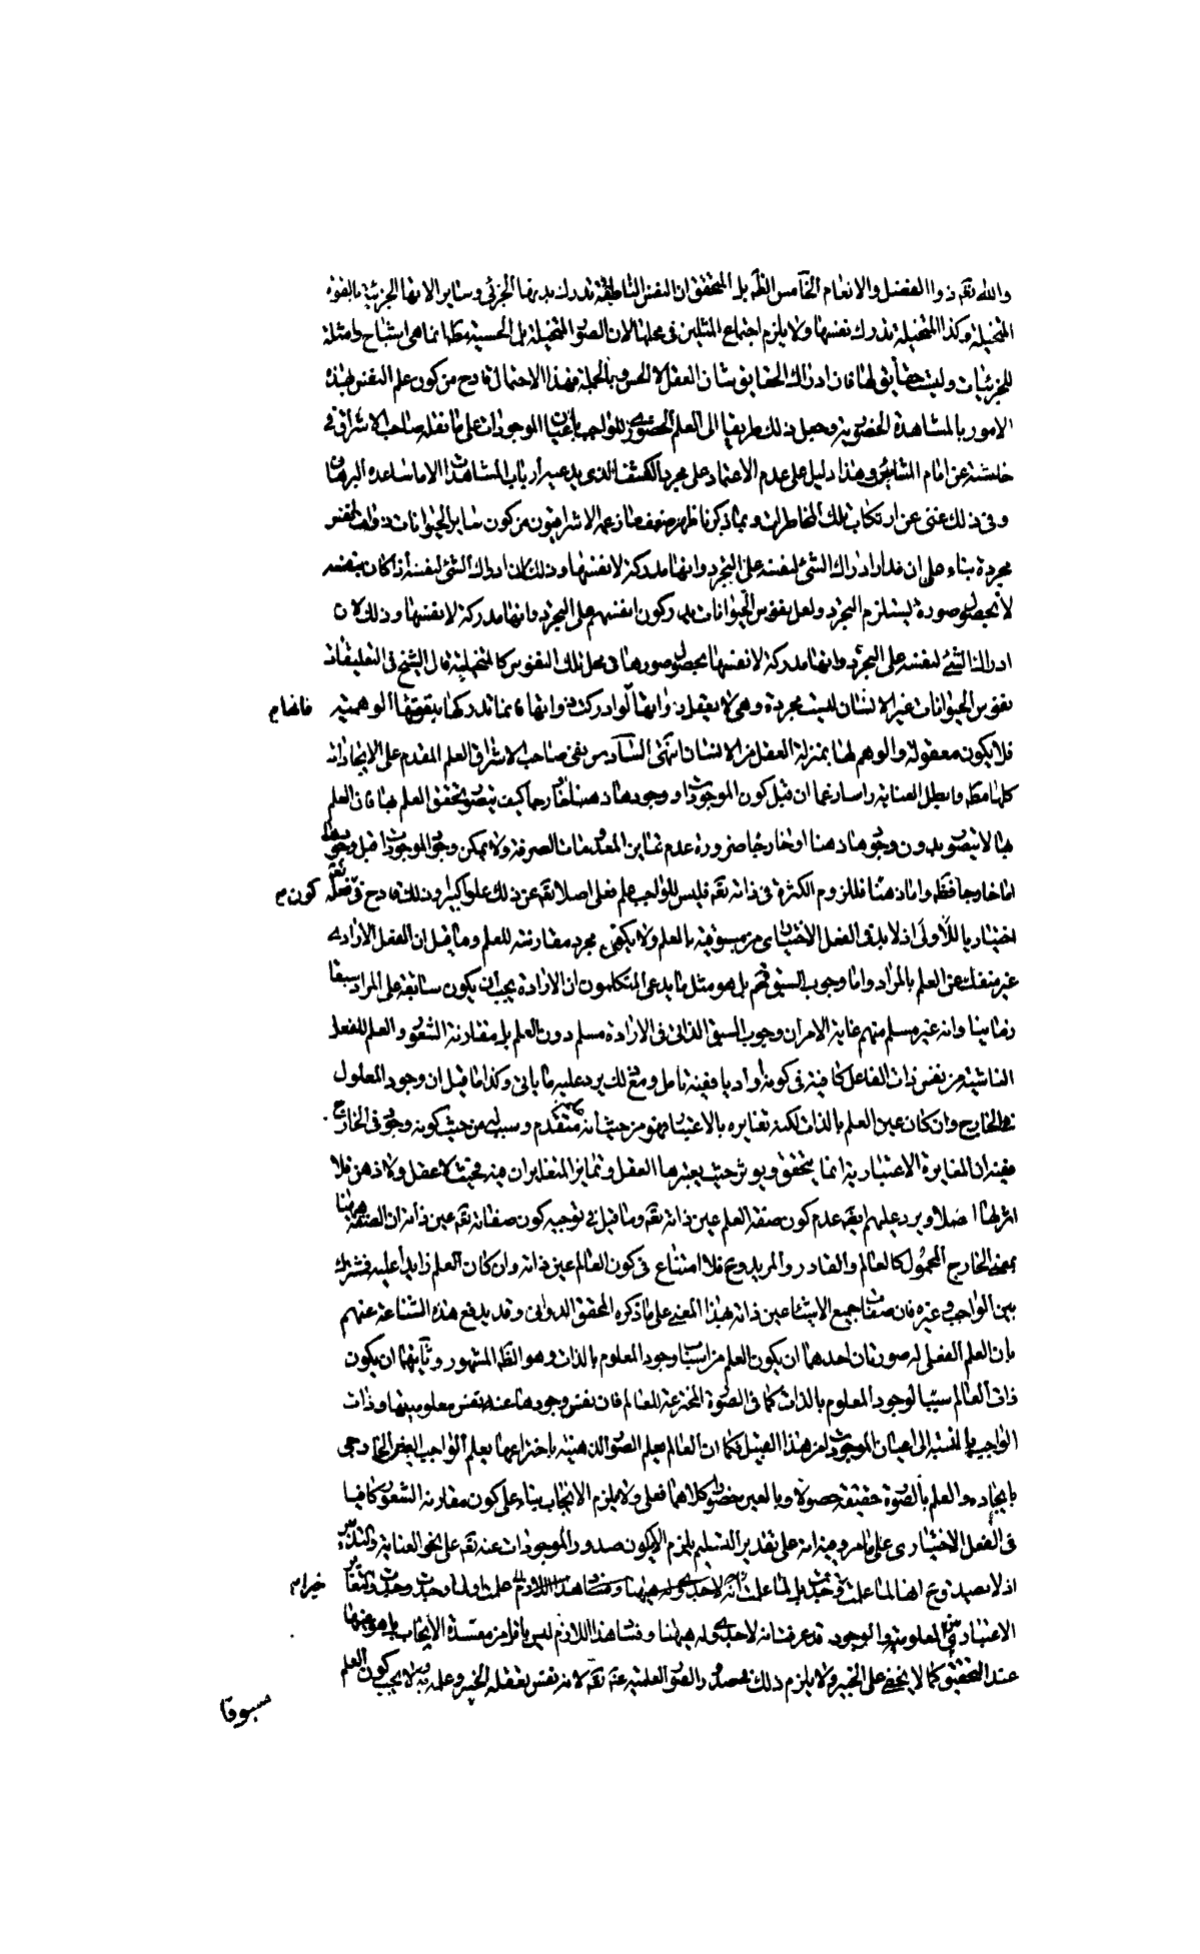 والله تقه ذوا الفضل والانعام الخامس الظه بل المحقق ان النفس الناطقة تدرك بدنها الجزئى وساير الاتها الجزئية بالقوة
المتخيلة وكذا المتخيلة تدرك نفسها ولا يلزم اجتماع المثلين فى محلها لان الصور المتخيلة بل الحسية مظ انما هى اشباح وامثلة
للجزئيات وليت حقايق لها فان ادراك الحقايق شان العقل لا الحس وبالجملة فهذا الاحتمال قادح من كون علم النفس بهذه
الامور بالمشاهدة الحضورية وجعل ذلك طريقا الى العلم الحضورى للواجب باعيان الموجودات على ما نقله صاحب الاشراق فى
خلسته عن امام المشائين وهذا دليل على عدم الاعتماد على مجرد الكشف الذى يدعيه ارباب المشاهدات الا ما ساعده البرهان
وفى ذلك غنى عن ارتكاب تلك المخاطرات وبما ذكرنا ظهر ضعف ما زعمه الاشراقيون من كون ساير الحيوانات ذوات نفس
مجردة بناء على ان مدار ادراك الشئ لنفسه على التجرد وانها مدركة لانفسها وذلك لان ادراك الشئ لنفسه اذا كان بنفسه
لا بحصول صورة يستلزم التجرد ولعل نفوس الحيوانات يدركون انفسهم على التجرد وانها مدركة لانفسها وذلك لان
ادراك الشئ لنفسه على التجرد وانها مدركة لانفسها بحصول صورها فى محل تلك النفوس كالمتخيلة قال الشيخ فى التعليقات
نفوس الحيوانات غير الانسان ليست مجردة وهى لا تعقل ذواتها لو ادركت ذواتها فانما تدركها بقوتها الوهمية
فلا يكون معقولة والوهم لها بمنزلة العقل من الانسان انتهى السادس نفى صاحب الاشراق العلم المقدم على الايجادات
كلها مظ وابطل العناية راسا زعما ان قبل كون الموجودات ووجودها ذهنا وخارجا كيف يتصور تحقق العلم بها فان العلم
بها لا يتصور بدون وجودها ذهنا او خارجا ضرورة عدم تمايز المعدومات الصرفة ولا يمكن وجود الموجودات قبل وجودها
اما خارجا فظ واما ذهنا فللزوم الكثرة فى ذاته تقه فليس للواجب علم فعلى اصلا تقه عن ذلك علوا كبيرا وذلك قادح فى فعله تقه كون م
اختياريا للاولى اذ لا بد فى الفعل الاختيارى من مسبوقيته بالعلم ولا يكفى مجرد مقارنته للعلم وما قيل ان الفعل الارادى
غير منفك عن العلم بالمراد واما وجوب السبق فمم بل هو مثل ما يدعى المتكلمون ان الارادة يجب ان يكون سابقة على المراد سبقا
زمانيا وانه غير مسلم منهم غاية الامر ان وجوب السبق الذاتى فى الارادة مسلم دون العلم بل مقارنة الشعور والعلم للفعل
الناشية من نفس ذات الفاعل كافية فى كونه اراديا ففيه تامل ومع ذلك يرد عليه ما ياتى وكذا ما قيل ان وجود المعلول
فى الخارج وان كان عين العلم بالذات لكنه تغايره بالاعتبار فهو من حيث انه علم متقدم وسبب من حيث كونه وجود فى الخارج
ففيه ان المغايرة الاعتبارية انما يتحقق ويوثر حيث يعتبرها العقل وتمايز المتغايران فيه فحيث لا عقل ولا ذهن فلا
اثر لها اصلا ويرد عليهم ايضه عدم كون صفة العلم عين ذاته تقه وما قيل فى توجيه كون صفاته تقه عين ذاته ان الصفة ههنا
بمعنى الخارج المحمول كالعالم والقادر والمريد وح فلا امتناع فى كون العالم عين ذاته وان كان العلم زايدا عليه فمشترك
بين الواجب وغيره فان صفات جميع الاشياء عين ذاته بهذا المعنى على ما ذكره المحقق الدوانى وقد يدفع هذه الشناعة عنهم
بان العلم الفعلى له صورتان احدهما ان يكون العلم من اسباب وجود المعلوم بالذات وهو الظه المشهور وثانيهما ان يكون
ذات العالم سببا لوجود المعلوم بالذات كما فى الصورة المخترعة للعالم فان نفس وجودها عنه نفس معلوميتها وذات
الواجب بالنسبة الى اعيان الموجودات من هذا القبيل فكما ان العالم يعلم الصور الذهنية باختراعها يعلم الواجب العين الخارجى
بايجاده والعلم بالصورة حقيقة حصولا وبالعين حضورا وكلاهما فعلى ولا يلزم الايجاب بناء على كون مقارنة الشعور كافيا
فى الفعل الاختيارى على ما مر وفيه انه على تقدير التسليم يلزم الا يكون صدور الموجودات عنه تقه على نحو العناية والتدبير
الاعتبار فى المعلومية والوجود قد عرفت انه لا جدوى له ههنا وفساد هذا اللازم ليس باقل من مفسدة الايجاب بل هو عينها
عند التحقيق كما لا يخفى على الخبير ولا يلزم ذلك فى صدور الصور العلمية عنه تقه لانه نفس تعقله الخير وعلمه به ولا يجب كون العلم
سبوقا